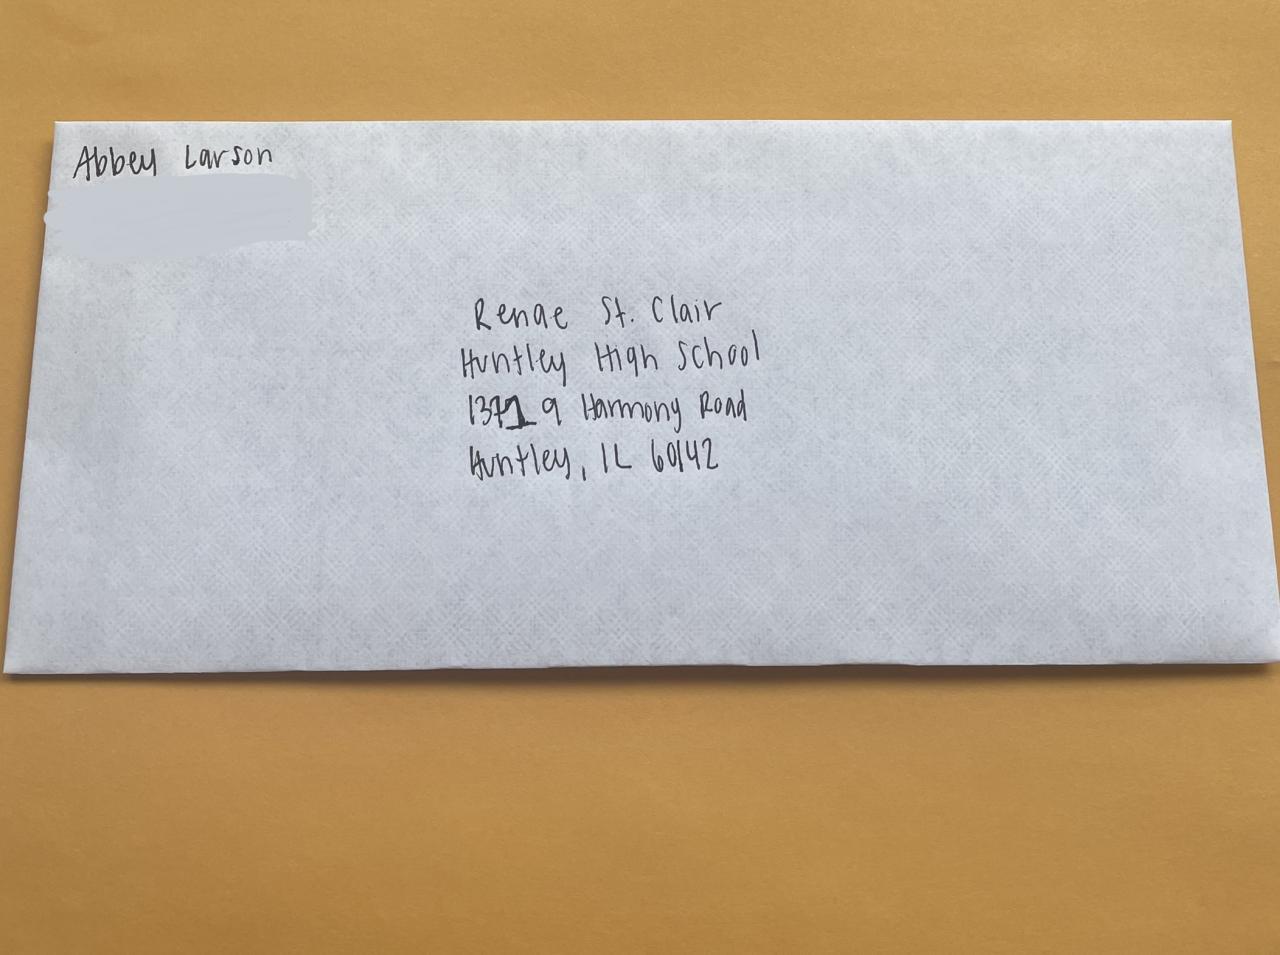 Abbey Larson
Renae St. Clair
Huntley High School
13719 Harmony Road
Huntley, IL 60142